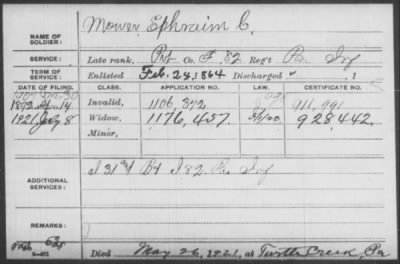 NAME OF SOLDIER: Mower, Ephraim C.
SERVICE: Late rank, Pvt Co. F, 82 Reg't Pa. Inf
TERM OF SERVICE: Enlisted Feb. 24, 1864 Discharged , 1
DATE OF FILING. CLASS. APPLICATION NO. LAW. CERTIFICATE NO.
1892 Apr 14 Invalid, 1106,372 911,991
1921 July 8 Widow, 1176,457 928,442.
Minor,
ADDITIONAL SERVICES: I 31st By I 82 Pa Inf
REMARKS:
Died May 26, 1921, at Turtle Creek, Pa